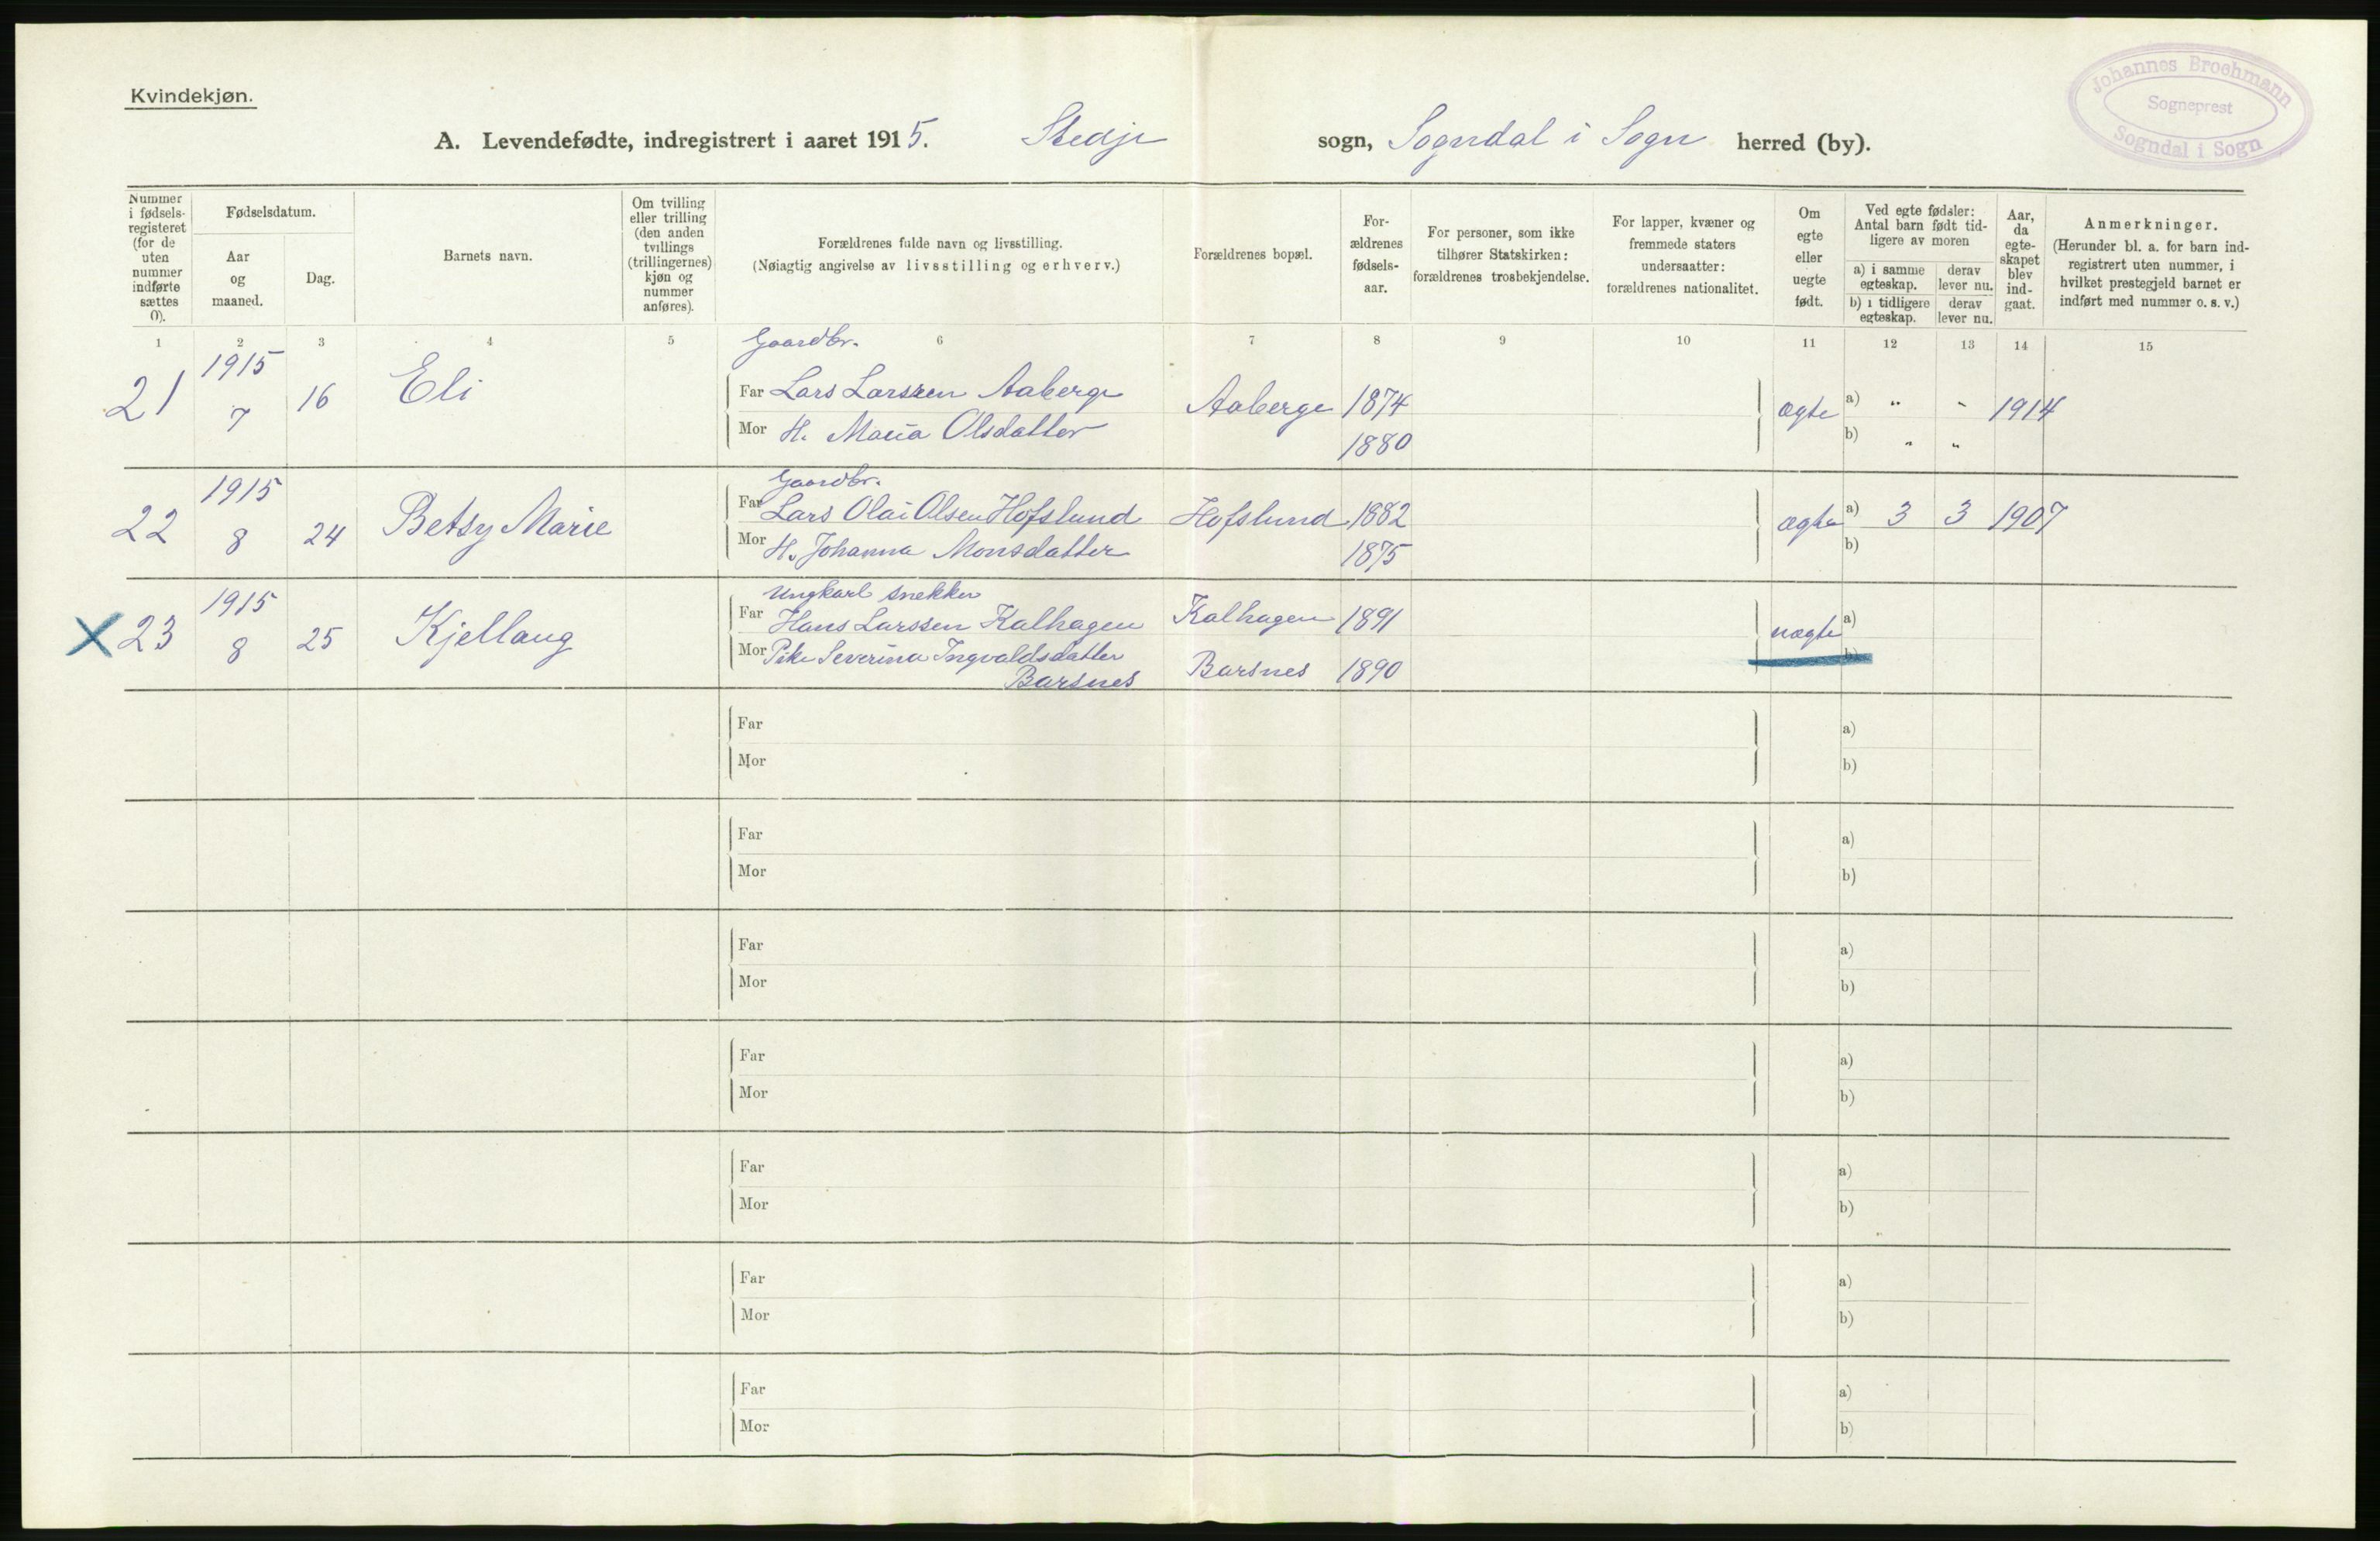 Kvindekjøn.
Johannes Broehmann
Sogneprest
Sogndal i Sogn
A. Levendefødte, indregistrert i aaret 1915. Stedje sogn, Sogndal i Sogn herred (by).
Nummer i fødsels-registeret (for de uten nummer indførte sættes 0).
Fødselsdatum.
Aar og maaned.
Dag.
Barnets navn.
Om tvilling eller trilling (den anden tvillings (trillingernes) kjøn og nummer anføres).
Forældrenes fulde navn og livsstilling.
(Nøiagtig angivelse av livsstilling og erhverv.)
Forældrenes bopæl.
For-ældrenes fødsels-aar.
For personer, som ikke tilhører Statskirken: forældrenes trosbekjendelse.
For lapper, kvæner og fremmede staters undersaatter: forældrenes nationalitet.
Om egte eller uegte født.
Ved egte fødsler: Antal barn født tid-ligere av moren
a) i samme egteskap.
derav lever nu.
b) i tidligere egteskap.
derav lever nu.
Aar, da egte-skapet blev ind-gaat.
Anmerkninger.
(Herunder bl. a. for barn ind-registrert uten nummer, i hvilket prestegjeld barnet er indført med nummer o. s. v.)
1 2 3 4 5 6 7 8 9 10 11 12 13 14 15
Gaardbr.
21 1915 7 16 Eli Far Lars Larssen Aaberge Aaberge 1874 ægte a) " " 1914
Mor H. Maria Olsdatter 1880 b) " "
Gaardbr.
22 1915 8 24 Betsy Marie Far Lars Olai Olsen Hofslund Hofslund 1882 ægte a) 3 3 1907
Mor H. Johanna Monsdatter 1875 b)
Ungkarl snekker
X 23 1915 8 25 Kjellaug Far Hans Larssen Kalhagen Kalhagen 1891 uægte a)
Mor Pike Severina Ingvaldsdatter
Barsnes Barsnes 1890 b)
Far a)
Mor b)
Far a)
Mor b)
Far a)
Mor b)
Far a)
Mor b)
Far a)
Mor b)
Far a)
Mor b)
Far a)
Mor b)